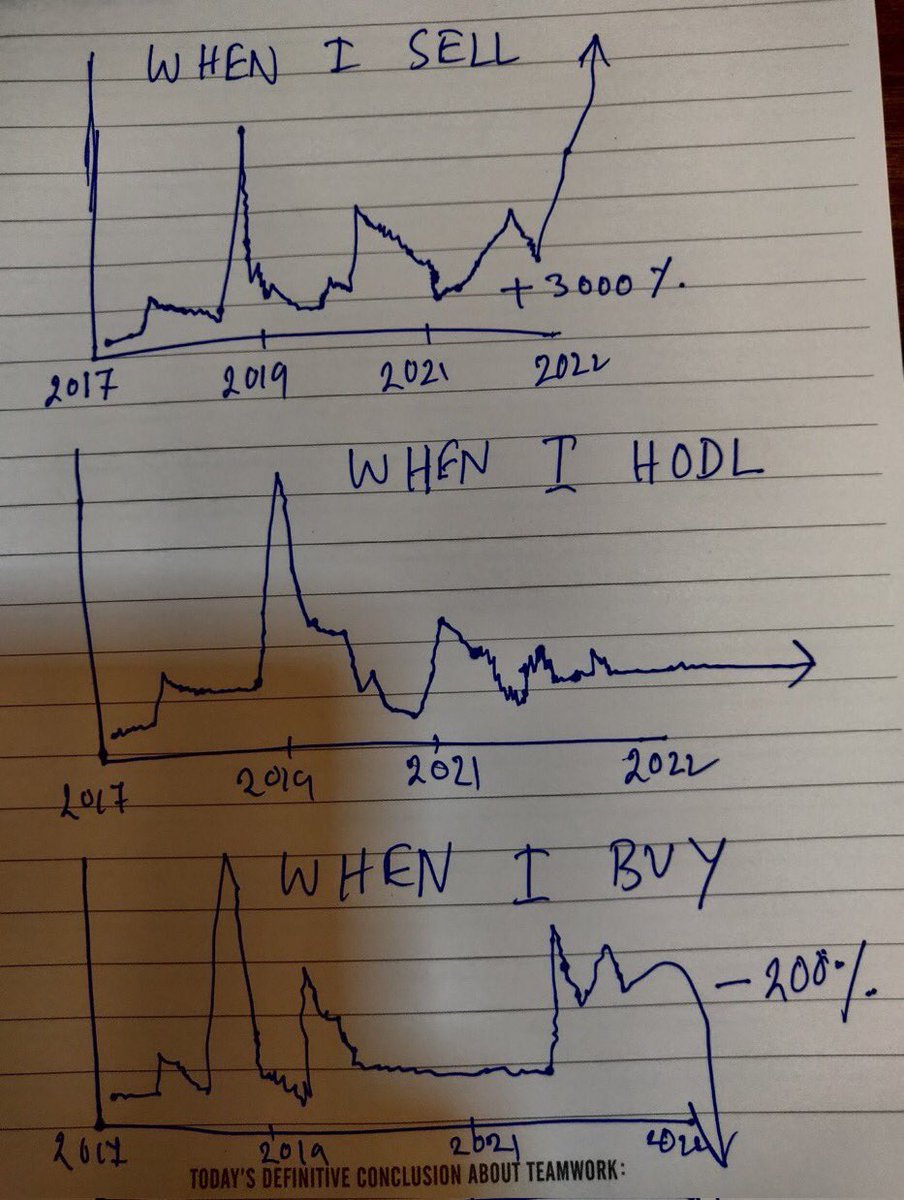 WHEN I SELL
+ 3000 %.
2017 2019 2021 2022
WHEN I HODL
2017 2019 2021 2022
WHEN I BUY
- 200%.
2017 2019 2021
TODAY'S DEFINITIVE CONCLUSION ABOUT TEAMWORK: